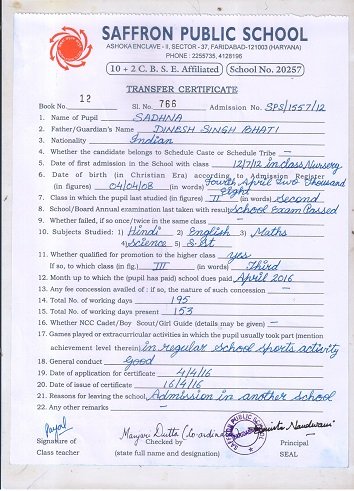 SAFFRON PUBLIC SCHOOL
ASHOKA ENCLAVE - II, SECTOR - 37, FARIDABAD-121003 (HARYANA)
PHONE : 2255735, 4128196
10 + 2 C. B. S. E. Affiliated School No. 20257
TRANSFER CERTIFICATE
Book No. 12 Sl. No. 766 Admission No. SPS/1557/12
1. Name of Pupil SADHNA
2. Father/Guardian's Name DINESH SINGH BHATI
3. Nationality Indian
4. Whether the candidate belongs to Schedule Caste or Schedule Tribe —
5. Date of first admission in the School with class 12/7/12 in class Nursery
6. Date of birth (in Christian Era) according to Admission Register
(in figures) 04/04/08 (in words) Fourth April Two Thousand Eight
7. Class in which the pupil last studied (in figures) II (in words) Second
8. School/Board Annual examination last taken with result School Exam Passed
9. Whether failed, if so once/twice in the same class —
10. Subjects Studied: 1) Hindi 2) English 3) Maths
4) Science 5) S.St
11. Whether qualified for promotion to the higher class yes
If so, to which class (in fig.) III (in words) Third
12. Month up to which the (pupil has paid) school dues paid April 2016
13. Any fee concession availed of : if so, the nature of such concession —
14. Total No. of working days 195
15. Total No. of working days present 153
16. Whether NCC Cadet/Boy Scout/Girl Guide (details may be given) —
17. Games played or extracurricular activities in which the pupil usually took part (mention
achievement level therein) in regular school sports activity
18. General conduct Good
19. Date of application for certificate 4/4/16
20. Date of issue of certificate 16/4/16
21. Reasons for leaving the school Admission in another school
22. Any other remarks —
Payal Manjari Dutta (Co-ordinator)
Signature of Checked by Principal
Class teacher (state full name and designation) SEAL